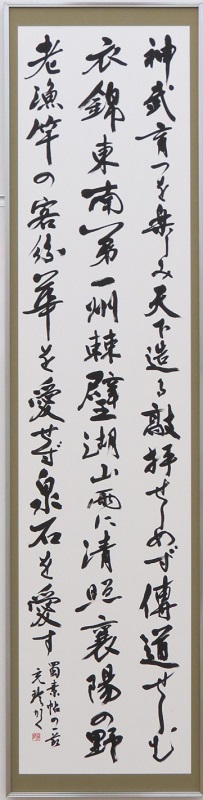 神武育つを楽しみ天下造る敲拝せしめず傳道せしむ
衣錦東南第一州棘壁湖山両に清照襄陽の野
老漁竿の客紛華を愛せず泉石を愛す
蜀素帖の一節